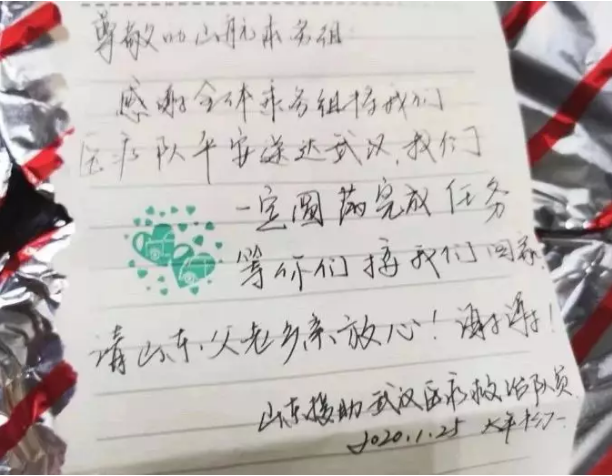 尊敬的山航乘务组:
感谢全体乘务组将我们
医疗队平安送达武汉,我们
一定圆满完成任务
等你们接我们回家!
请山东父老乡亲放心!谢谢!
山东援助武汉医疗救治队员
2020.1.25 大年初一